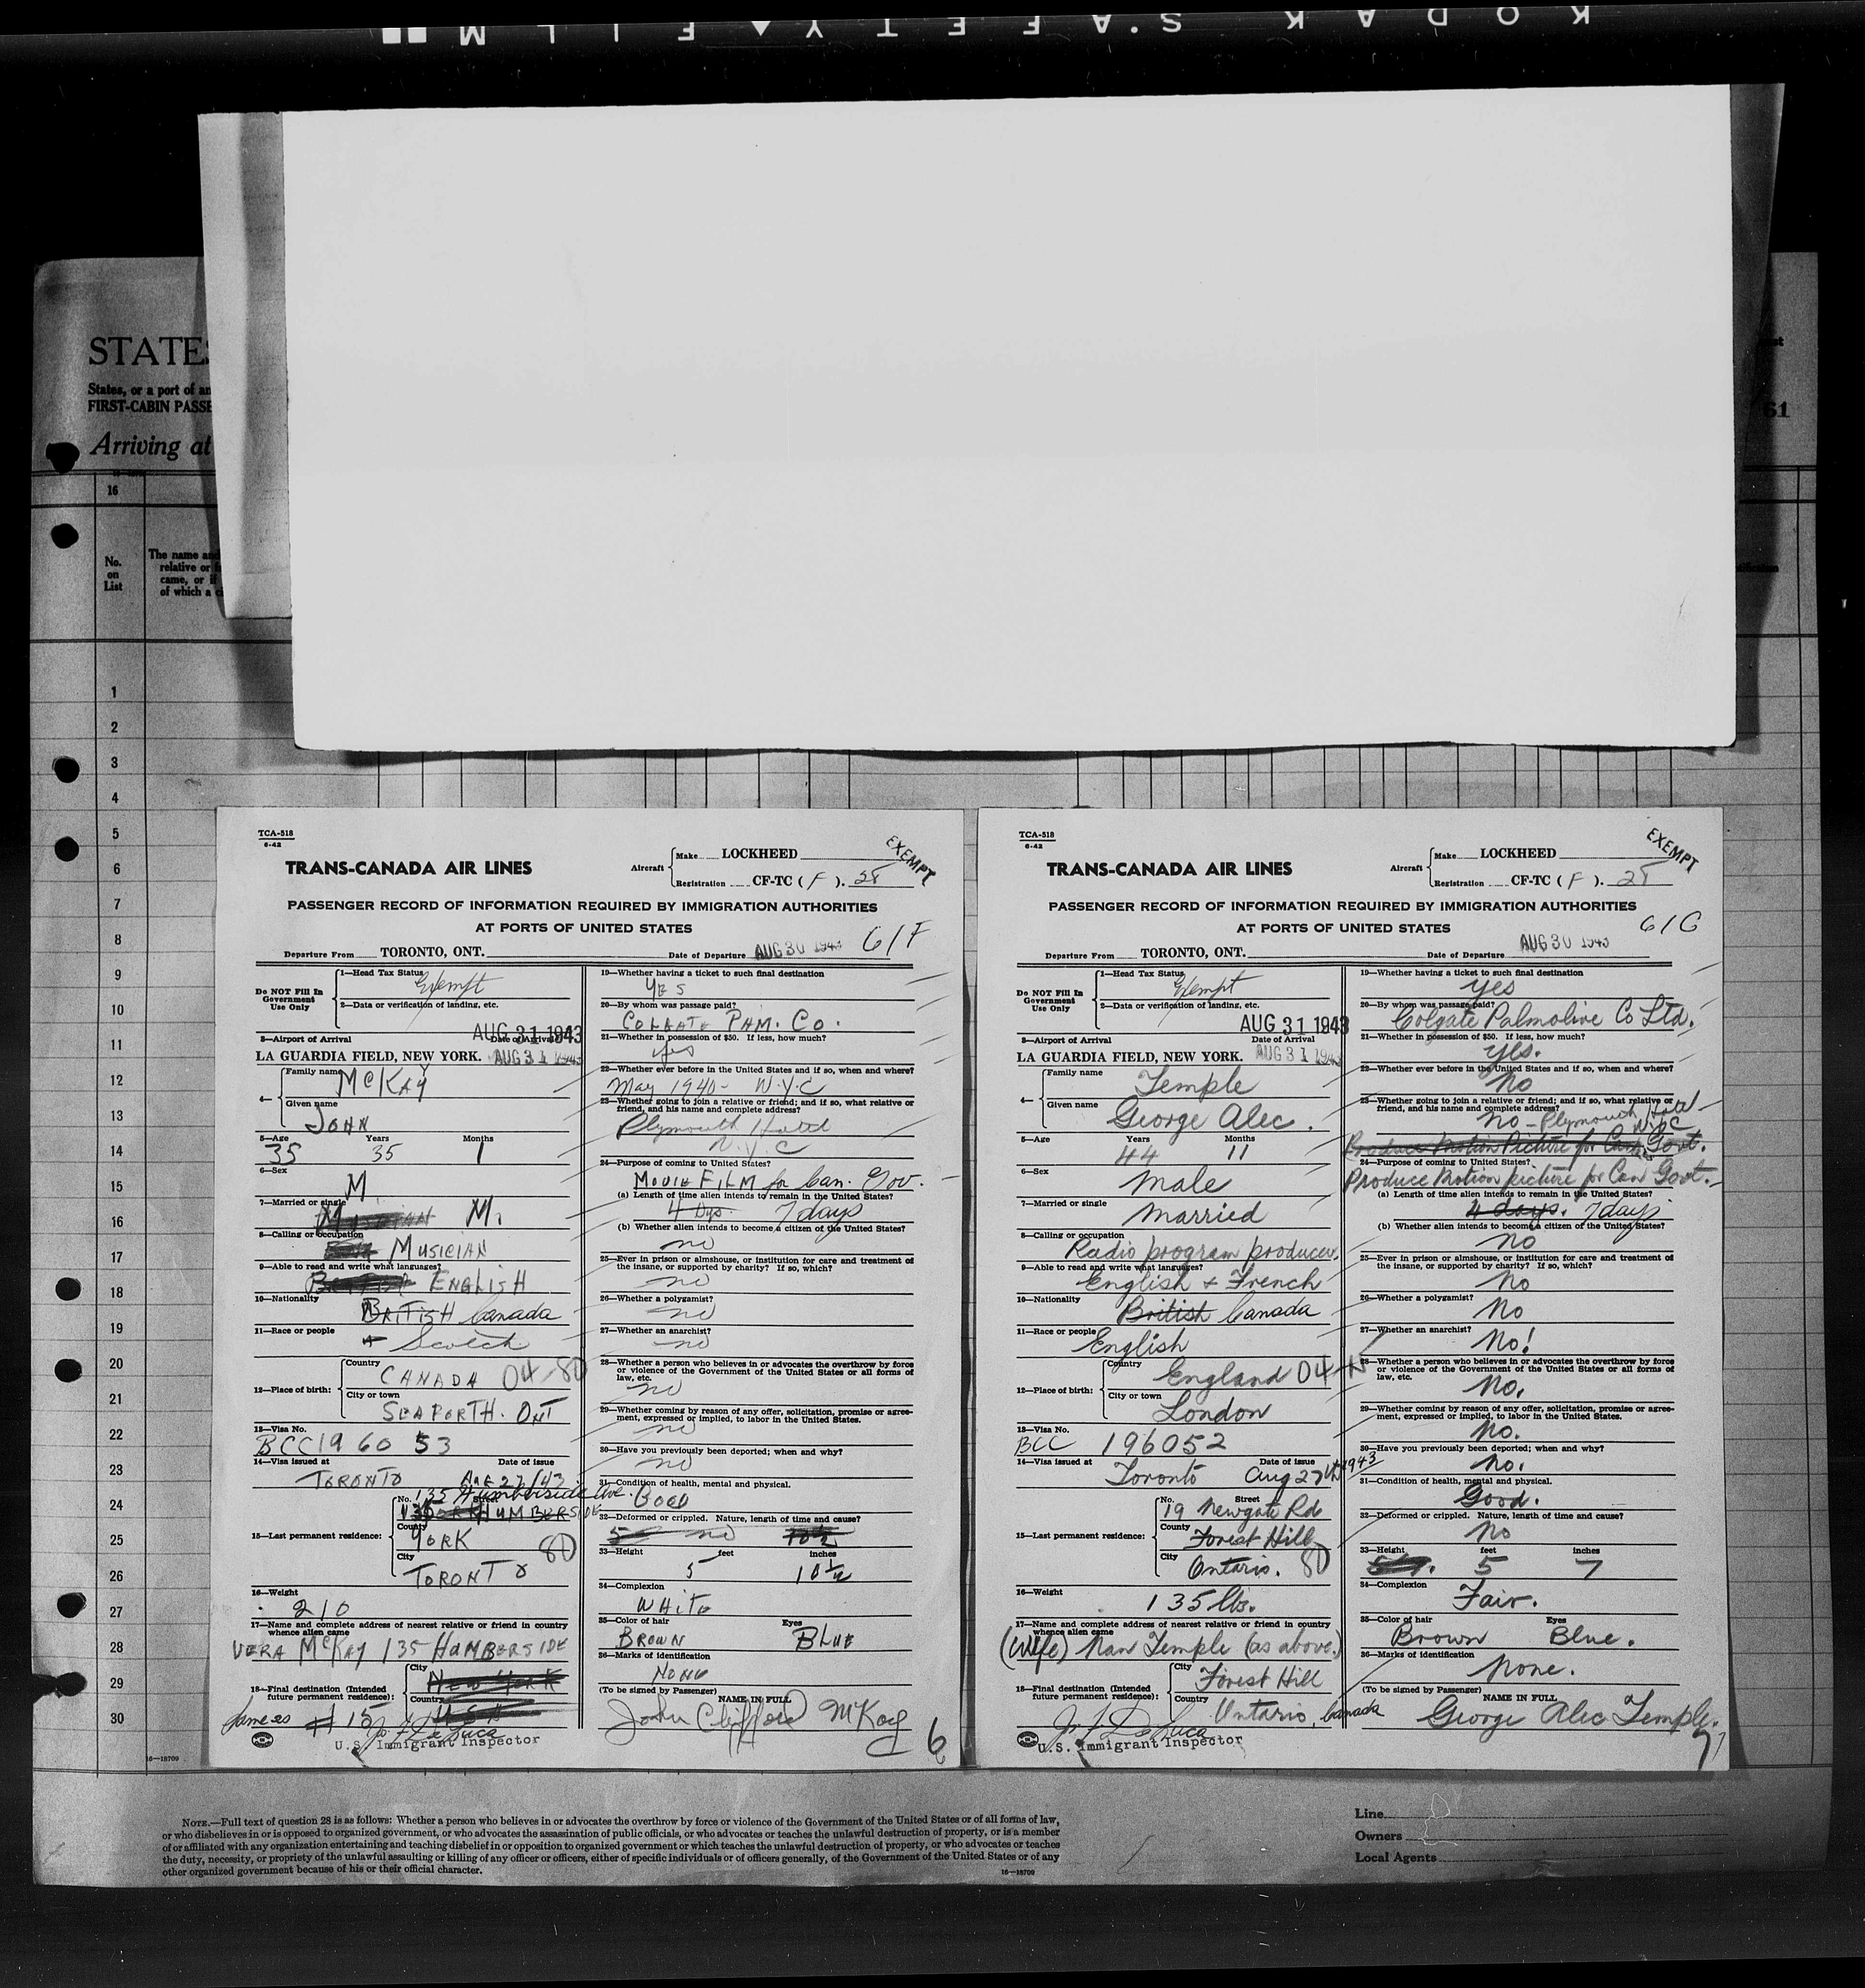 KODAK S.AFETY FILM
STATES
States, or a port of an
FIRST-CABIN PASSE
Arriving at
61
16
No.
on
List
The name and
relative or
came, or if
of which a
1
2
3
4
5
6
7
8
9
10
11
12
13
14
15
16
17
18
19
20
21
22
23
24
25
26
27
28
29
30
16—18709
TCA-518
6-42
TRANS-CANADA AIR LINES
Aircraft Make LOCKHEED
Registration CF-TC ( F ). 28
EXEMPT
PASSENGER RECORD OF INFORMATION REQUIRED BY IMMIGRATION AUTHORITIES
AT PORTS OF UNITED STATES
61F
Departure From TORONTO, ONT. Date of Departure AUG 30 1943
Do NOT Fill In Government Use Only
1—Head Tax Status Exempt
2—Data or verification of landing, etc.
AUG 31 1943
3—Airport of Arrival Date of Arrival
LA GUARDIA FIELD, NEW YORK. AUG 31 1943
4— Family name McKAY
Given name JOHN
5—Age Years Months
35 35 1
6—Sex
M
7—Married or single
M.
8—Calling or occupation
MUSICIAN
9—Able to read and write what languages?
ENGLISH
10—Nationality
BRITISH Canada
11—Race or people
Scotch
12—Place of birth: Country
CANADA 04-80
City or town
SEAFORTH. ONT
13—Visa No.
BCC 19 60 53
14—Visa issued at Date of issue
TORONTO Aug 27/43
15—Last permanent residence: No. Street
135 Humberside Ave.
HUMBERSIDE
County
YORK 80
City
TORONTO
16—Weight
210
17—Name and complete address of nearest relative or friend in country whence alien came
VERA McKAY 135 HUMBERSIDE
18—Final destination (Intended future permanent residence): City
NEW YORK
Country
U S A
Same as # 15
Jn. J. DeLuca
U.S. Immigrant Inspector
19—Whether having a ticket to such final destination
YES
20—By whom was passage paid?
COLGATE PAM. CO.
21—Whether in possession of $50. If less, how much?
yes
22—Whether ever before in the United States and if so, when and where?
May 1940- N.Y.C
23—Whether going to join a relative or friend; and if so, what relative or
friend, and his name and complete address?
Plymouth Hotel
N.Y.C
24—Purpose of coming to United States?
MOVIE FILM for Can. Gov.
(a) Length of time alien intends to remain in the United States?
4 Dys. 7 days
(b) Whether alien intends to become a citizen of the United States?
no
25—Ever in prison or almshouse, or institution for care and treatment of
the insane, or supported by charity? If so, which?
no
26—Whether a polygamist?
no
27—Whether an anarchist?
no
28—Whether a person who believes in or advocates the overthrow by force
or violence of the Government of the United States or all forms of
law, etc.
no
29—Whether coming by reason of any offer, solicitation, promise or agree-
ment, expressed or implied, to labor in the United States.
no
30—Have you previously been deported; when and why?
no
31—Condition of health, mental and physical.
GOOD
32—Deformed or crippled. Nature, length of time and cause?
5 no 10½
33—Height feet inches
5 10½
34—Complexion
WHITE
35—Color of hair Eyes
BROWN BLUE
36—Marks of identification
NONE
(To be signed by Passenger) NAME IN FULL
John Clifford McKay
6
TCA-518
6-42
TRANS-CANADA AIR LINES
Aircraft Make LOCKHEED
Registration CF-TC ( F ). 28
EXEMPT
PASSENGER RECORD OF INFORMATION REQUIRED BY IMMIGRATION AUTHORITIES
AT PORTS OF UNITED STATES
61G
Departure From TORONTO, ONT. Date of Departure AUG 30 1943
Do NOT Fill In Government Use Only
1—Head Tax Status Exempt
2—Data or verification of landing, etc.
AUG 31 1943
3—Airport of Arrival Date of Arrival
LA GUARDIA FIELD, NEW YORK. AUG 31 1943
4— Family name Temple
Given name George Alec.
5—Age Years Months
44 11
6—Sex
Male
7—Married or single
Married
8—Calling or occupation
Radio program producer.
9—Able to read and write what languages?
English & French
10—Nationality
British Canada
11—Race or people
English
12—Place of birth: Country
England 04
City or town
London
13—Visa No.
BCC 196052
14—Visa issued at Date of issue
Toronto Aug 27th 1943
15—Last permanent residence: No. Street
19 Newgate Rd
County
Forest Hill
City
Ontario. 80
16—Weight
135 lbs.
17—Name and complete address of nearest relative or friend in country whence alien came
(Wife) Nan Temple (as above.)
18—Final destination (Intended future permanent residence): City
Forest Hill
Country
Ontario, Canada
Jn. J. DeLuca
U.S. Immigrant Inspector
19—Whether having a ticket to such final destination
yes
20—By whom was passage paid?
Colgate Palmolive Co Ltd.
21—Whether in possession of $50. If less, how much?
yes.
22—Whether ever before in the United States and if so, when and where?
No
23—Whether going to join a relative or friend; and if so, what relative or
friend, and his name and complete address?
no - Plymouth Hotel
N.Y.C
Produce Motion Picture for Can. Govt.
24—Purpose of coming to United States?
Produce Motion picture for Can Govt.
(a) Length of time alien intends to remain in the United States?
4 days. 7 days
(b) Whether alien intends to become a citizen of the United States?
no
25—Ever in prison or almshouse, or institution for care and treatment of
the insane, or supported by charity? If so, which?
No
26—Whether a polygamist?
No
27—Whether an anarchist?
No!
28—Whether a person who believes in or advocates the overthrow by force
or violence of the Government of the United States or all forms of
law, etc.
No.
29—Whether coming by reason of any offer, solicitation, promise or agree-
ment, expressed or implied, to labor in the United States.
No.
30—Have you previously been deported; when and why?
No.
31—Condition of health, mental and physical.
Good.
32—Deformed or crippled. Nature, length of time and cause?
No
33—Height feet inches
5 7
34—Complexion
Fair.
35—Color of hair Eyes
Brown Blue.
36—Marks of identification
None.
(To be signed by Passenger) NAME IN FULL
George Alec Temple.
7
NOTE.—Full text of question 28 is as follows: Whether a person who believes in or advocates the overthrow by force or violence of the Government of the United States or of all forms of law,
or who disbelieves in or is opposed to organized government, or who advocates the assassination of public officials, or who advocates or teaches the unlawful destruction of property, or is a member
of or affiliated with any organization entertaining and teaching disbelief in or opposition to organized government or which teaches the unlawful destruction of property, or who advocates or teaches
the duty, necessity, or propriety of the unlawful assaulting or killing of any officer or officers, either of specific individuals or of officers generally, of the Government of the United States or of any
other organized government because of his or their official character.
16—18709
Line
Owners
Local Agents